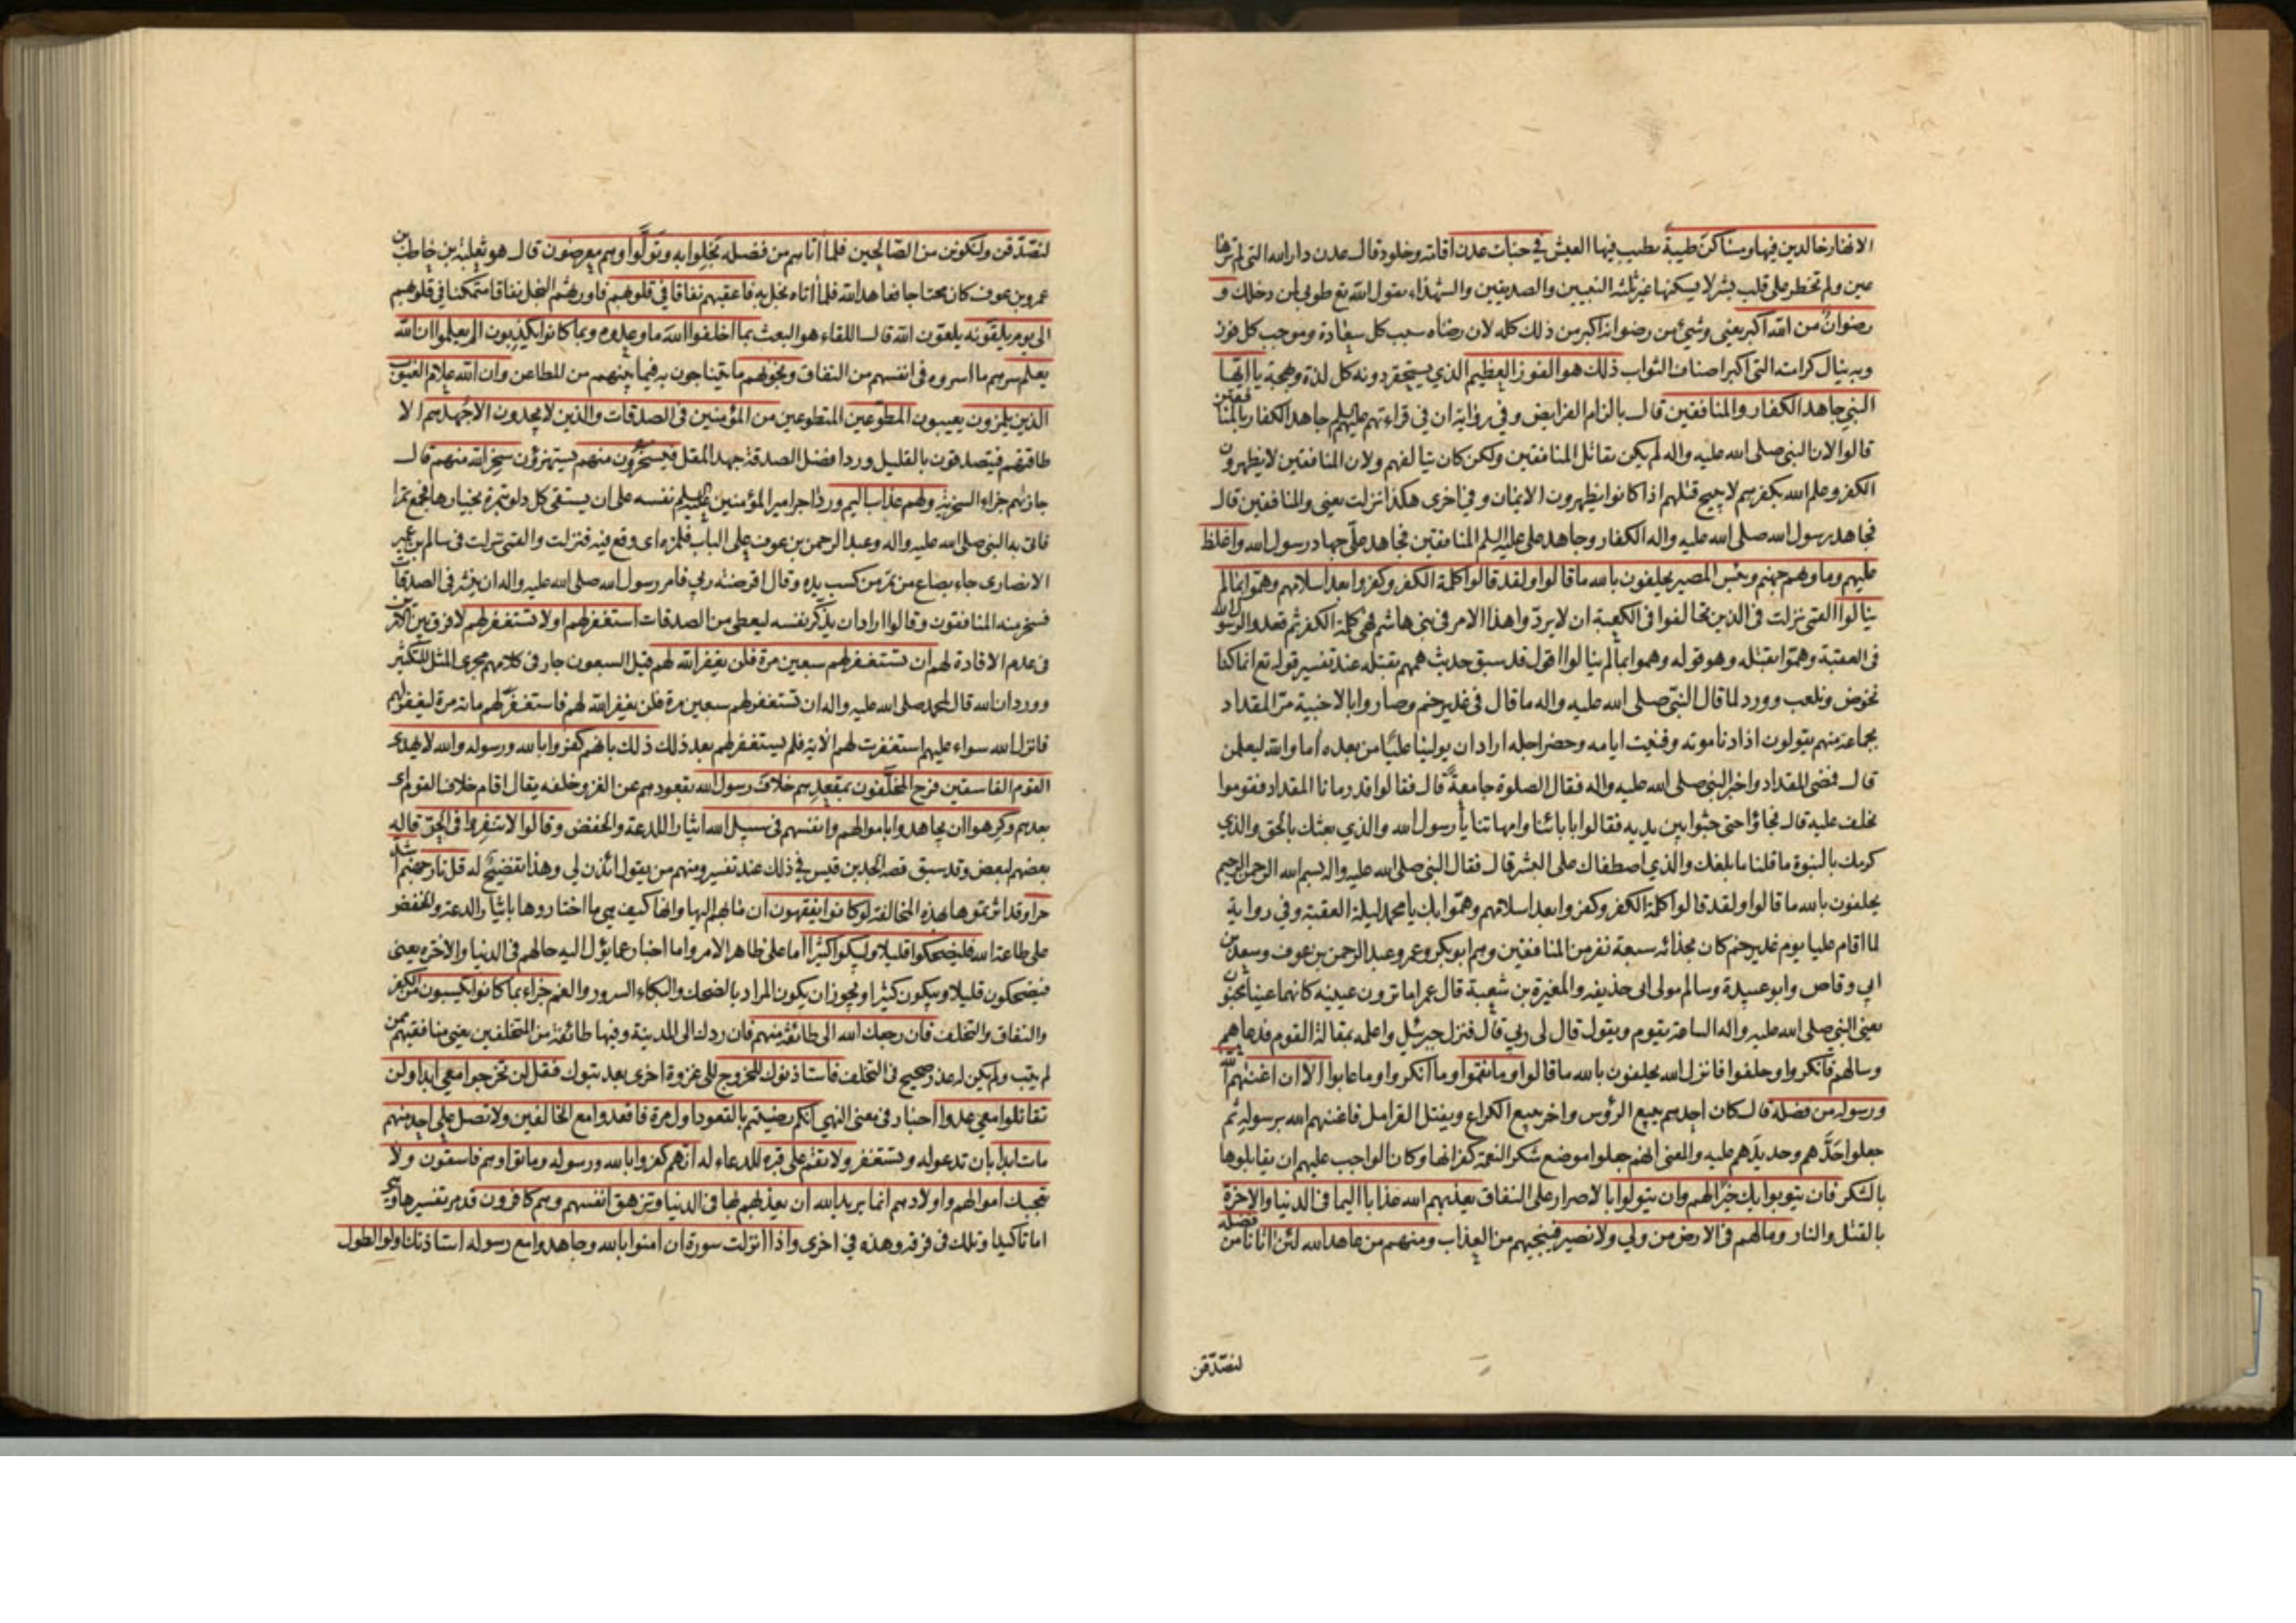 الانهار خالدين فيها ومساكن طيبة يطيب فيها العيش في جنات عدن اقامة وخلود قال عدن دار الله التي لم ترها
عين ولم تخطر على قلب بشر لا يسكنها غير ثلثة النبيين والصديقين والشهداء يقول الله تع طوبى لمن دخلك و
رضوان من الله اكبر يعني وشيء من رضوانه اكبر من ذلك كله لان رضاه سبب كل سعادة وموجب كل فوز
وبه ينال كرامته التي اكبر اصناف الثواب ذلك هو الفوز العظيم الذي يستحقر دونه كل لذة وبهجة يا ايها
النبي جاهد الكفار والمنافقين قال بالزام الفرايض وفي رواية ان في قراءتهم عليهم السلم جاهد الكفار بالمنافقين
قالوا لان النبي صلى الله عليه واله لم يكن يقاتل المنافقين ولكن كان يتالفهم ولان المنافقين لا يظهرون
الكفر وعلم الله بكفرهم لا يبيح قتلهم اذا كانوا يظهرون الايمان وفي اخرى هكذا نزلت يعني والمنافقين قال
فجاهد رسول الله صلى الله عليه واله الكفار وجاهد على عليه السلم المنافقين فجاهد علي جهاد رسول الله واغلظ
عليهم وماويهم جهنم وبئس المصير يحلفون بالله ما قالوا ولقد قالوا كلمة الكفر وكفروا بعد اسلامهم وهموا بما لم
ينالوا القمي نزلت في الذين تحالفوا في الكعبة ان لا يردوا هذا الامر في بني هاشم فهي كلمة الكفر ثم قعدوا لرسول الله
في العقبة وهموا بقتله وهو قوله وهموا بما لم ينالوا اقول قد سبق حديث هممهم بقتله عند تفسير قوله تع انما كنا
نخوض ونلعب وورد لما قال النبي صلى الله عليه واله ما قال في غدير خم وصاروا بالاخبية مر المقداد
بجماعة منهم يقولون اذا دنا موته وفنيت ايامه وحضر اجله اراد ان يولينا عليا من بعده اما والله ليعلمن
قال فمضى المقداد واخبر النبي صلى الله عليه واله فقال الصلوة جامعة قال فقالوا قد رمانا المقداد فقوموا
نحلف عليه قال فجاؤا حتى جثوا بين يديه فقالوا بابائنا وامهاتنا يا رسول الله والذي بعثك بالحق والذي
كرمك بالنبوة ما قلنا ما بلغك والذي اصطفاك على البشر قال فقال النبي صلى الله عليه واله بسم الله الرحمن الرحيم
يحلفون بالله ما قالوا ولقد قالوا كلمة الكفر وكفروا بعد اسلامهم وهموا بك يا محمد ليلة العقبة وفي رواية
لما اقام عليا يوم غدير خم كان بحذائه سبعة نفر من المنافقين وهم ابو بكر وعمر وعبد الرحمن بن عوف وسعد بن
ابي وقاص وابو عبيدة وسالم مولى ابي حذيفة والمغيرة بن شعبة قال عمر اما ترون عينيه كانهما عينا مجنون
يعني النبي صلى الله عليه واله الساعة يقوم ويقول قال لي ربي قال فنزل جبرئيل واعلمه بمقالة القوم فدعاهم
وسالهم فانكروا وحلفوا فانزل الله يحلفون بالله ما قالوا وما نقموا وما انكروا وما عابوا الا ان اغنيهم الله
ورسوله من فضله قال كان احدهم يبيع الرؤس واخر يبيع الكراع ويفتل القرامل فاغنيهم الله برسوله ثم
جعلوا حدهم وحديدهم عليه والمعنى انهم جعلوا موضع شكر النعمة كفرانها وكان الواجب عليهم ان يقابلوها
بالشكر فان يتوبوا يك خيرا لهم وان يتولوا بالاصرار على النفاق يعذبهم الله عذابا اليما في الدنيا والاخرة
بالقتل والنار وما لهم في الارض من ولي ولا نصير فينجيهم من العذاب ومنهم من عاهد الله لئن اتانا من فضله
لنصدقن
لنصدقن ولنكونن من الصالحين فلما اتاهم من فضله بخلوا به وتولوا وهم معرضون قال هو ثعلبة بن حاطب بن
عمرو بن عوف كان محتاجا فعاهد الله فلما اتاه بخل به فاعقبهم نفاقا في قلوبهم فاورثهم البخل نفاقا متمكنا في قلوبهم
الى يوم يلقونه يلقون الله قال اللقاء هو البعث بما اخلفوا الله ما وعدوه وبما كانوا يكذبون الم يعلموا ان الله
يعلم سرهم ما اسروه في انفسهم من النفاق ونجواهم ما يتناجون به فيما بينهم من المطاعن وان الله علام الغيوب
الذين يلمزون يعيبون المطوعين المتطوعين من المؤمنين في الصدقات والذين لا يجدون الا جهدهم الا
طاقتهم فيتصدقون بالقليل وورد افضل الصدقة جهد المقل فيسخرون منهم يستهزؤن سخر الله منهم قال
جازاهم جزاء السخرية ولهم عذاب اليم ورد اجر امير المؤمنين عليه السلم نفسه على ان يستقي كل دلو بتمرة بخيارها فجمع تمرا
فاتى به النبي صلى الله عليه واله وعبد الرحمن بن عوف على الباب فلمزه اى وقع فيه فنزلت والقمي نزلت في سالم بن عمير
الانصاري جاء بصاع من تمر من كسب يده وقال اقرضته ربي فامر رسول الله صلى الله عليه واله ان ينثره في الصدقات
فسخر منه المنافقون وقالوا اراد ان يذكر نفسه ليعطى من الصدقات استغفر لهم او لا تستغفر لهم لا فرق بين الامرين
في عدم الافادة لهم ان تستغفر لهم سبعين مرة فلن يغفر الله لهم قيل السبعون جار في كلامهم مجرى المثل للتكثير
وورد ان الله قال لمحمد صلى الله عليه واله ان تستغفر لهم سبعين مرة فلن يغفر الله لهم فاستغفر لهم مائة مرة ليغفر لهم
فانزل الله سواء عليهم استغفرت لهم الاية فلم يستغفر لهم بعد ذلك ذلك بانهم كفروا بالله ورسوله والله لا يهدى
القوم الفاسقين فرح المخلفون بمقعدهم خلاف رسول الله بقعودهم عن الغزو خلفه يقال اقام خلاف القوم اى
بعدهم وكرهوا ان يجاهدوا باموالهم وانفسهم في سبيل الله ايثارا للدعة والخفض وقالوا لا تنفروا في الحر قاله
بعضهم لبعض وقد سبق قصة الجد بن قيس في ذلك عند تفسير ومنهم من يقول ائذن لي وهذا تفضيح له قل نار جهنم اشد
حرا وقد اثرتموها بهذه المخالفة لو كانوا يفقهون ان مئابهم اليها وانها كيف هي ما اختاروها بايثار الدعة والخفض
على طاعة الله فليضحكوا قليلا وليبكوا كثيرا اما على ظاهر الامر واما اخبار عما يؤل اليه حالهم في الدنيا والاخرة يعنى
فيضحكون قليلا ويبكون كثيرا ويجوز ان يكون المراد بالضحك والبكاء السرور والغم جزاء بما كانوا يكسبون من الكفر
والنفاق والتخلف فان رجعك الله الى طائفة منهم فان ردك الى المدينة وفيها طائفة من المتخلفين يعني منافقيهم ممن
لم يتب ولم يكن له عذر صحيح في التخلف فاستاذنوك للخروج الى غزوة اخرى بعد تبوك فقل لن تخرجوا معي ابدا ولن
تقاتلوا معي عدوا اخبار في معنى النهي انكم رضيتم بالقعود اول مرة فاقعدوا مع الخالفين ولا تصل على احد منهم
مات ابدا بان تدعو له وتستغفر ولا تقم على قبره للدعاء له انهم كفروا بالله ورسوله وماتوا وهم فاسقون ولا
تعجبك اموالهم واولادهم انما يريد الله ان يعذبهم بها في الدنيا وتزهق انفسهم وهم كافرون قد مر تفسيرها وهي
اما تاكيد او تلك في فرقة وهذه في اخرى واذا انزلت سورة ان امنوا بالله وجاهدوا مع رسوله استاذنك اولوا الطول